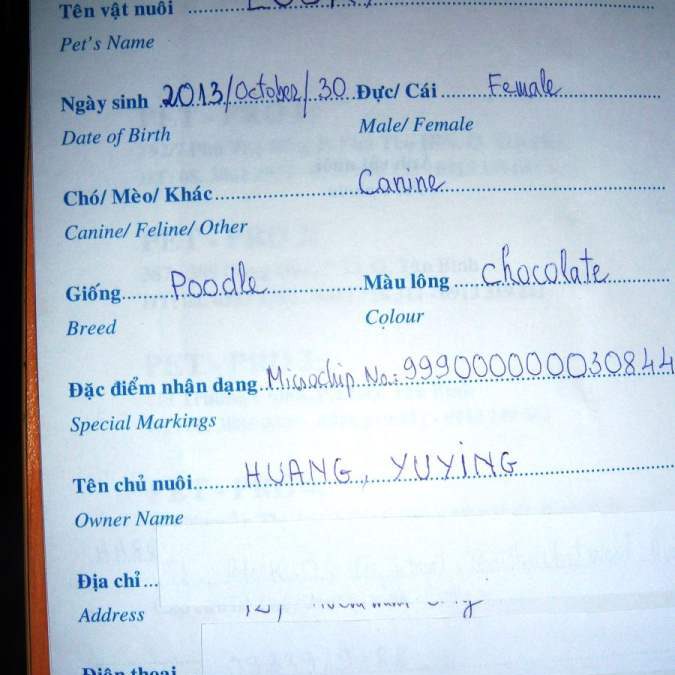 Tên vật nuôi
Pet's Name
Ngày sinh 2013/October/30 Đực/ Cái Female
Date of Birth Male/ Female
Chó/ Mèo/ Khác Canine
Canine/ Feline/ Other
Giống Poodle Màu lông Chocolate
Breed Colour
Đặc điểm nhận dạng Microchip No.: 999000000030844
Special Markings
Tên chủ nuôi HUANG, YUYING
Owner Name
Địa chỉ
Address
Điện thoại